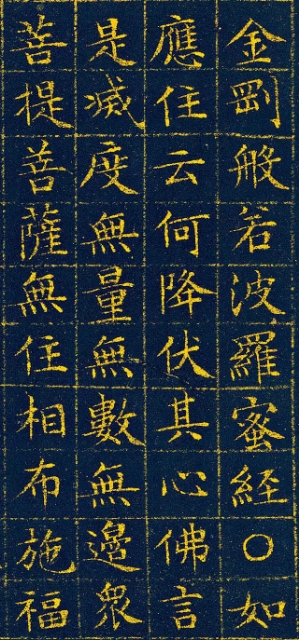 金剛般若波羅蜜経○如
應住云何降伏其心佛言
是滅度無量無數無邊衆
菩提菩薩無住相布施福